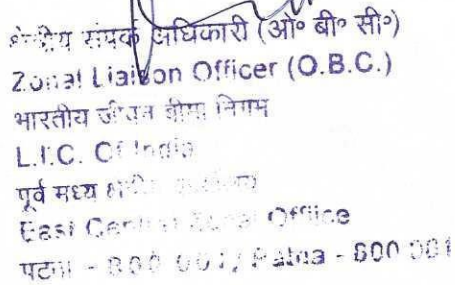 क्षेत्रीय संपर्क अधिकारी (ओ० बी० सी०)
Zonal Liaison Officer (O.B.C.)
भारतीय जीवन बीमा निगम
L.I.C. Of India
पूर्व मध्य क्षेत्रीय कार्यालय
East Central Zonal Office
पटना - 800 001 / Patna - 800 001